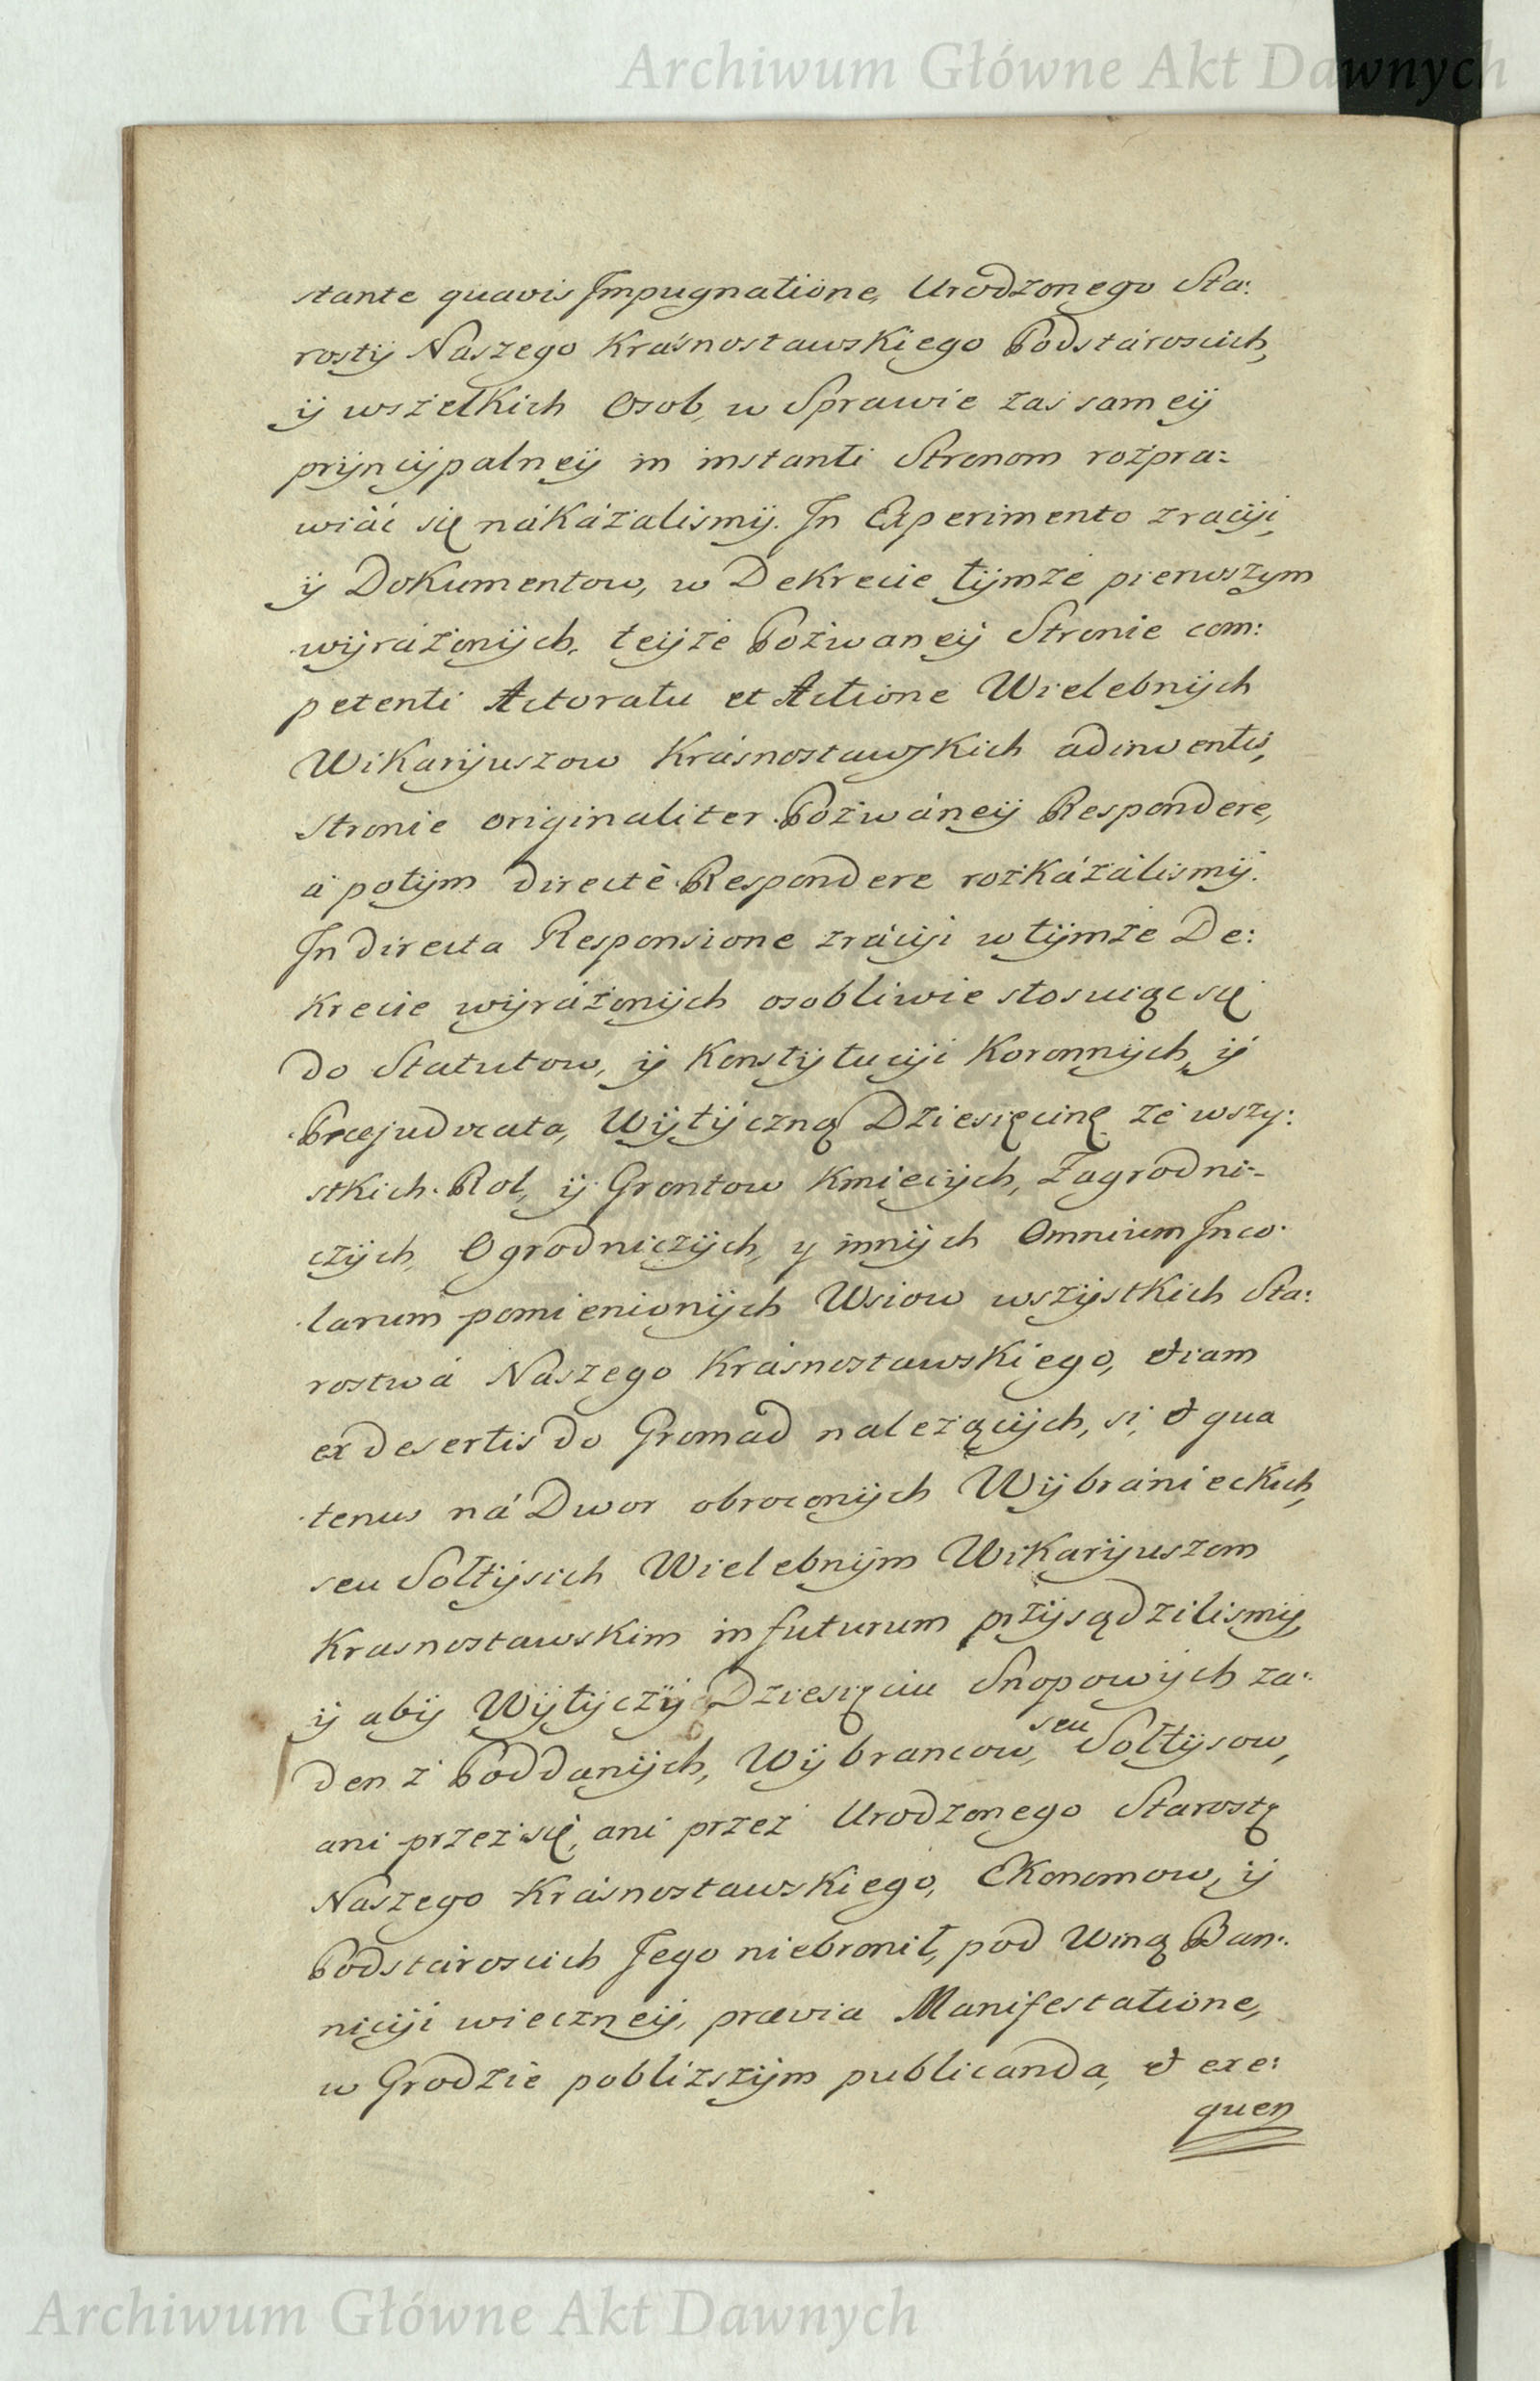 Archiwum Główne Akt Dawnych
stante quavis Impugnatione, Urodzonego Sta:
rosty Naszego Krásnostawskiego Podstároscich,
ÿ wszelkich Osob, w Sprawie zaś sameÿ
prÿncÿpalneÿ in instanti Stronom rozpra:
wiáć się nákázalismÿ. In Experimento zracÿi,
ÿ Dokumentow, w Dekrecie tÿmże pierwszym
wÿrázonÿch, teÿże Pozwaneÿ Stronie com:
petenti Actoratu et Actione Wielebnÿch
Wikarÿuszow Krásnostawskich adinventis,
stronie originaliter Pozwáneÿ Respondere,
á potÿm directè Respondere rozkázálismÿ.
In directa Responsione zrácÿi w tÿmże De:
krecie wÿrázonÿch osobliwie stosuiąc się
do Statutow, ÿ Konstÿtucÿi Koronnÿch, ÿ
Præjudicata, Wÿtÿczną Dziesięcinę ze wszy:
stkich Rol, ÿ Grontow Kmiecÿch, Zagrodni-
czÿch, Ogrodniczÿch, y innÿch Omnium Inco-
larum pomienionÿch Wsiow wszÿstkich Sta:
rostwá Naszego Krásnostawskiego, etiam
ex desertis do Gromad nalezącÿch, si, et qua
tenus ná Dwor obroconÿch Wÿbránieckich,
seu Sołtÿsich Wielebnÿm Wikarÿuszom
Krasnostawskim in futurum przÿsądzilismÿ,
ÿ abÿ Wÿtÿczÿ Dziesięciu Snopowÿch za:
den z Poddanÿch, Wÿbrancow, seu Sołtÿsow,
ani przez się, ani przez Urodzonego Starostę
Naszego Krásnostawskiego, Ekonomow, ÿ
Podstároscich Jego niebronił, pod Winą Ban:
nicÿi wieczneÿ, prævia Manifestatione,
w Grodzie poblizszÿm publicanda, et exe:
quen
Archiwum Główne Akt Dawnych